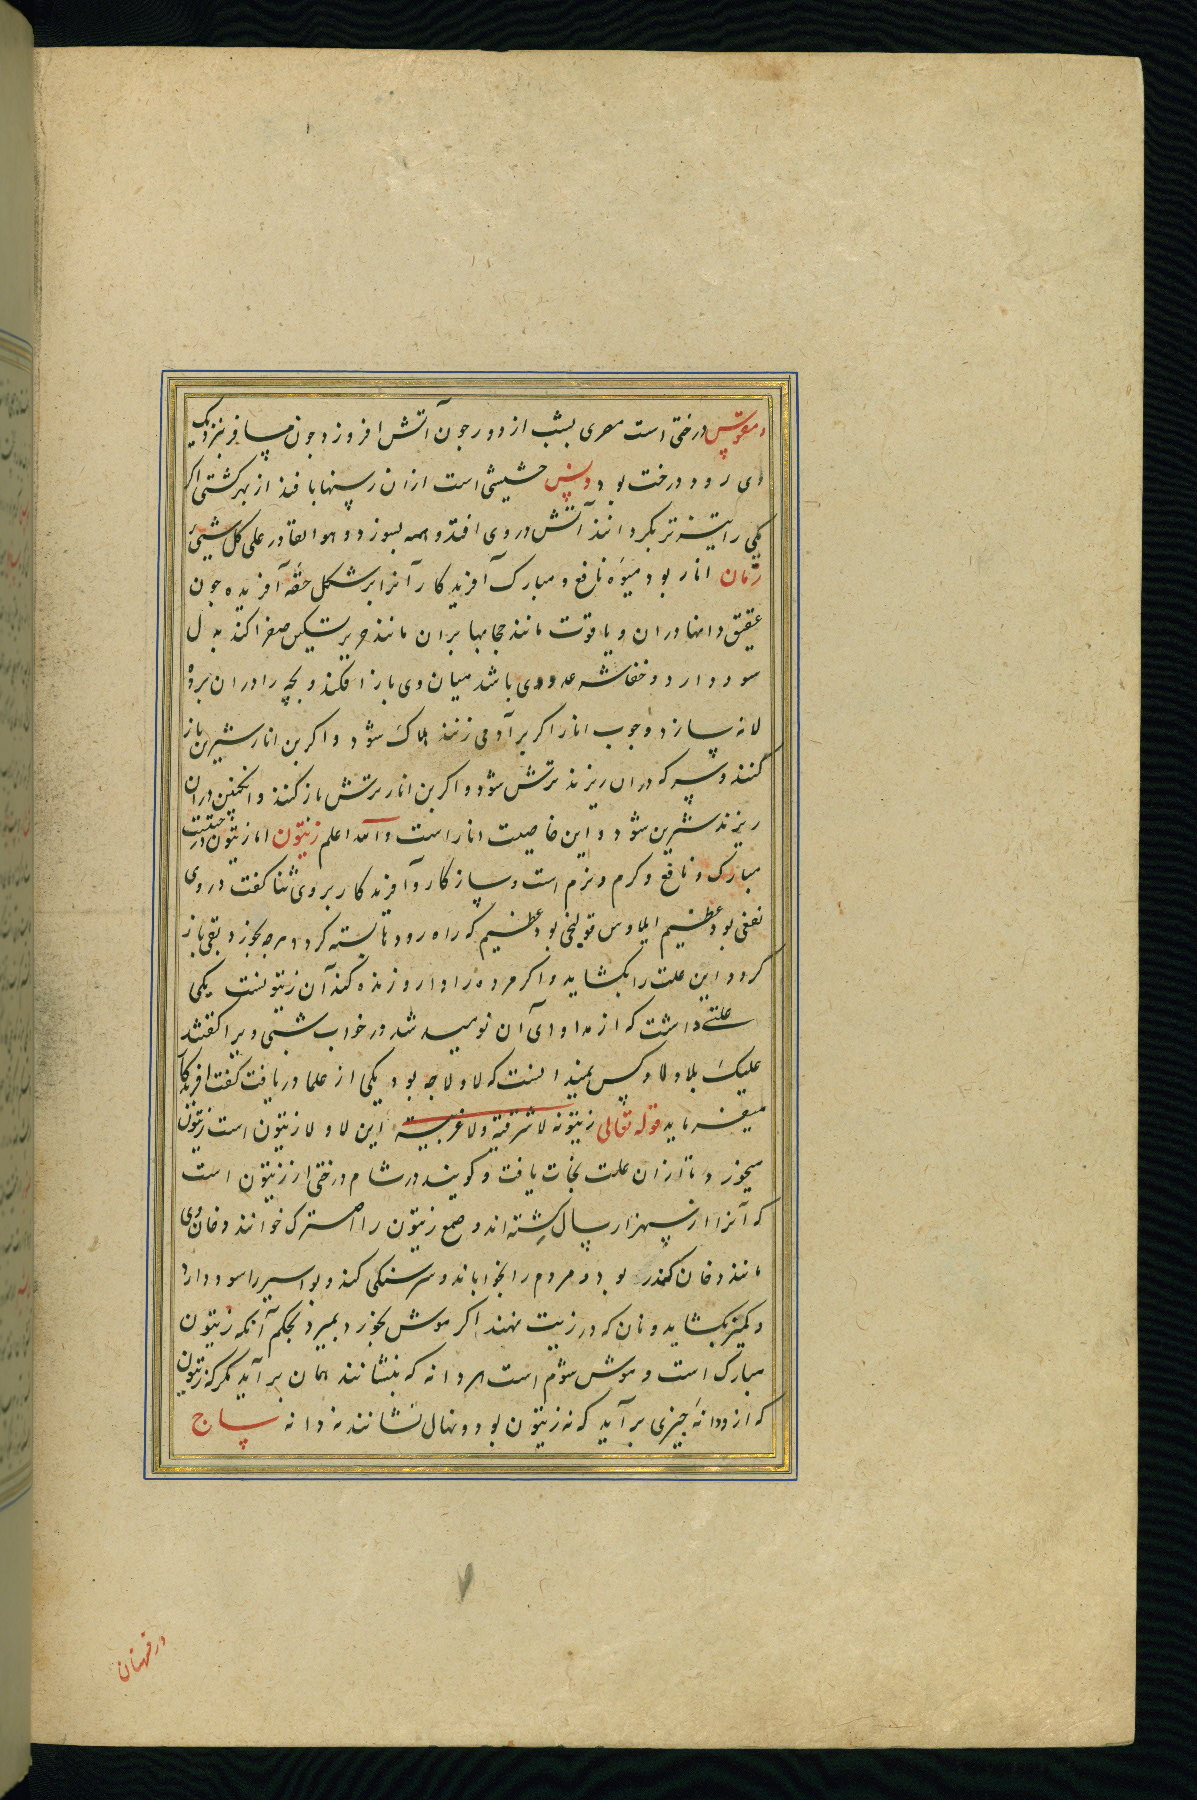 دمقوپس درختی است مصری بشب از دور جون آتش افروزد جون مسافر بنزدیک
وی رود درخت بود دونس حشیشی است ازان رسنها بافند از بهر کشتی اکر
یکی را تیزتر بکردانند آتش در وی افتد و همه بسوزد و هو القادر علی کل شیئ
رمان انار بود میوۀ نافع و مبارک آفریدکار آنرا بر شکل حقه آفریده جون
عقیق دانها دران و یاقوت مانند حجابها بران مانند حریر تسکین صفرا کند بدل
سود دارد و خفاش عدوی باشد میان وی باز افکند و بچه را دران برد و
لانه سازد و جوب انار اکر بر آدمی زنند هلاک شود و اکر بن انار شیرین باز
کنند و سرکه دران ریزند ترش شود و اکر بن انار ترش باز کنند و انکبین دران
ریزند شیرین شود و این خاصیت انار است والله اعلم زیتون اما زیتون درختیست
مبارک و نافع و کرم و نرم است و سازکار و آفریدکار بروی ثنا کفت در وی
نفعی بود عظیم ایلاوس قولنجی بود عظیم که راه رودها بسته کردد هرجه بخورد بقی باز
کردد این علت را بکشاید و اکر مرده را دارو زنده کند آن زیتونست یکی
علتی داشت که از مداوای آن نومید شد در خواب شبی ویرا کفتند
علیک بلا ولا و کس نمیدانست که لا ولا جه بود یکی از علما دریافت کفت افریدکار
میفرماید قوله تعالی زیتونة لا شرقیة ولا غربیة این لا و لا زیتون است زیتون
میخورد تا ازان علت نجات یافت و کویند در شام درختی از زیتون است
که آنرا از سه هزار سال کشته اند و صمغ زیتون را اصطرک خوانند دخان وی
مانند دخان کندر بود و مردم را بخواباند و سر سنکی کند و بواسیر را سود دارد
و کمیز بکشاید و نان که در زیت نهند اکر موش بخورد بمیرد بحکم آنکه زیتون
مبارک است و موش شوم است هر دانه که بنشانند همان بر آید مکر که زیتون
که از دانه جیزی بر آید که نه زیتون بود و نهال نشانند نه دانه ساج